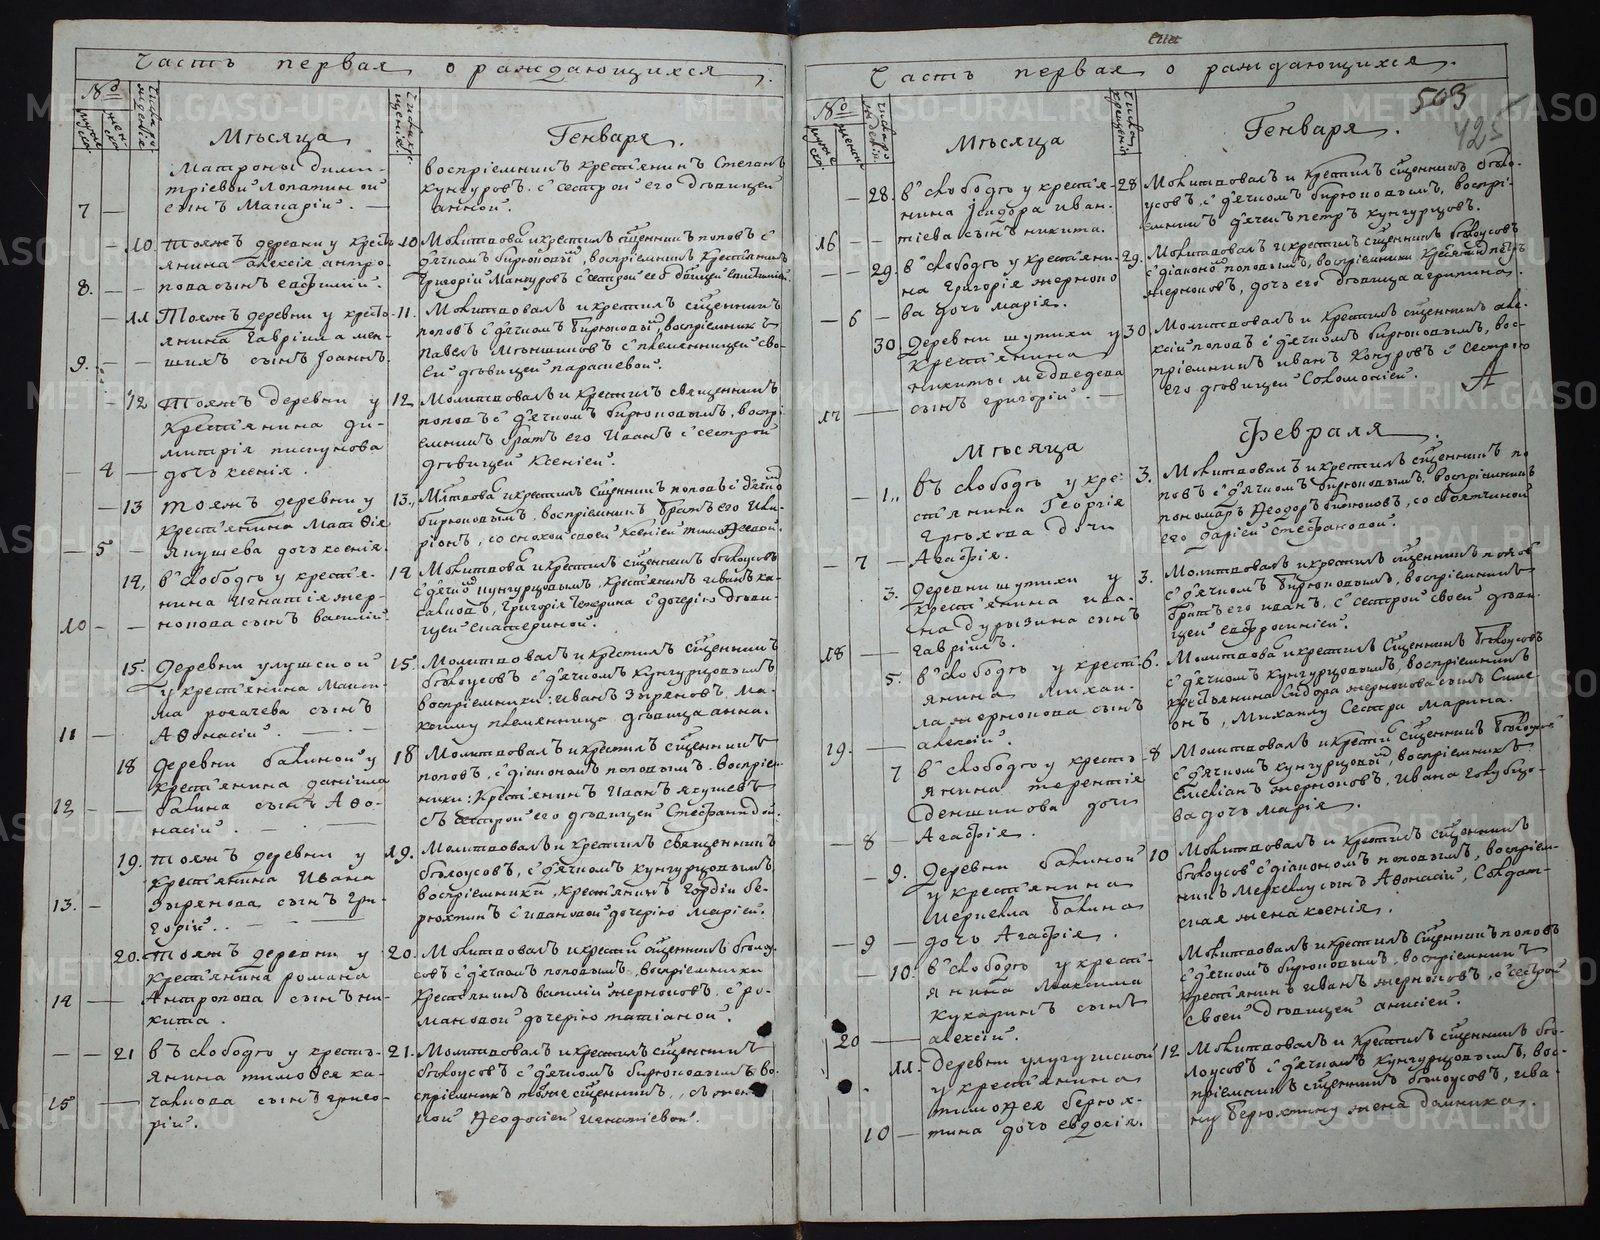 Часть первая о раждающихся.
№
Месяца
Генваря.
Матроны дими-
тріевой Лопатиной
7 — сынъ Макарій. —
воспріемникъ крестьянинъ Стефанъ
кунгуровъ, с сестрой его девицей
анной.
10. тояжъ деревни у кресть
янина алексія антро-
8. — — пова сынъ евфимій.
10. Молитвова и крестилъ сщенникъ поповъ с
дячкомъ бирюковы, воспріемникъ крестьянинъ
Григорій
11 Тояжъ деревни у кресть
янина Гавріила мен-
9. — — шихъ сынъ Іоаннъ.
11. Молитвовалъ и крестилъ сщенникъ
поповъ с дячкомъ бирюковы, воспріемникъ
павелъ с племянницей сво-
ей девицей параскевой.
12 Тояжъ деревни у
крестьянина ди-
митрія пискунова
— 4 — дочь ксенія.
12 Молитвовалъ и крестилъ священникъ
поповъ с дячкомъ бирюковымъ, воспрі-
емникъ братъ его Иванъ с сестрой
девицей Ксеніей.
— 13 тояжъ деревни у
крестьянина Матѳія
— 5 — Якушева дочь ксенія.
13. крестилъ сщенникъ поповъ с
бирюковымъ, воспріемникъ братъ его Ила-
ріонъ, со снохой своей Ксеніей тимоѳеевой.
14, в слободе у крестья-
нина Игнатія жер-
10 — — нокова сынъ василій.
14 Молитвова и крестилъ сщенникъ белоусовъ
крестьянинъ иванъ ка-
Григорія с дочерію деви-
цей екатериной.
15. Деревни улушской
у крестьянина Макси-
ма рогачева сынъ
11 — Аѳонасій.
15. Молитвовалъ и крестилъ сщенникъ
белоусовъ с дячкомъ кунгурцовымъ
воспріемники: иванъ зыряновъ, ма-
ксиму племянница девица анна.
18 Деревни бакиной у
крестьянина даніила
12 — — бакина сынъ Аѳо-
насій.
18 Молитвовалъ и крестилъ сщенникъ
поповъ, с діакономъ поповымъ. воспріем-
ники: Крестьянинъ Иванъ якушевъ
съ сестрой его девицей Стефанидой.
19. тояжъ деревни у
крестьянина Ивана
13. — зырянова сынъ Гри-
горій.
19. Молитвовалъ и крестилъ священникъ
белоусовъ, с дячкомъ кунгурцовымъ
воспріемники, крестьянинъ Гордій бе-
рюхтинъ с ивановой дочерію Маріей.
20. тояжъ деревни у
крестьянина романа
14 — Антропова сынъ ни-
кита.
20. Молитвовалъ и крести сщенникъ белоу-
совъ с дячкомъ поповымъ. воспріемники
крестьянинъ василій жерноковъ, с ро-
мановой дочерію татіаной.
— — 21 въ слободе у кресть-
янина тимоѳея ка-
15 — чалкова сынъ григо-
рій.
21. Молитвовалъ и крестилъ сщенникъ
белоусовъ с дячкомъ бирюковымъ во-
спріемникъ тоже сщенникъ,
ѳеодосіей игнатіевой.
Часть первая о раждающихся.
503
425
№
Месяца
Генваря.
— 28. в слободе у крестья-
нина Ісидора Иван-
16 — — тіева сынъ никита.
28 Молитвовалъ и крестилъ сщенникъ бело-
усовъ, с дячкомъ бирюковымъ, воспрі-
емникъ дячекъ петръ кунгурцовъ.
— — 29. в слободе у крестьяни-
на Григорія жерноко
— 6 — ва дочь марія.
29. Молитвовалъ и крестилъ сщенникъ белоусовъ
с діакономъ поповымъ, воспріемники крестьянинъ петръ
жерноковъ, дочь его девица агрипина.
30. Деревни шутихи у
крестьянина
никиты медведева
17 — сынъ григорій.
30. Молитвовалъ и крестилъ сщенникъ але-
ксій поповъ с дячкомъ бирюковымъ, вос-
пріемникъ иванъ с сестрою
его девицей Соломоніей.
Месяца
Февраля
— 1,, въ слободе у кре-
стьянина Георгія
грехова дочь
— 7 — Агафія.
3. Молитвовалъ и крестилъ сщенникъ по
повъ с дячкомъ бирюковымъ. воспріемникъ
пономарь ѳеодоръ бирюковъ, со своячиной
его даріей стефановой.
3. Деревни шутихи у
крестьянина ива-
на дурызина сынъ
18 — гавріилъ.
3. Молитвовалъ и крестилъ сщенникъ попов
с дячкомъ бирюковымъ, воспріемникъ
братъ его иванъ, с сестрой своей деви-
цей евфросиніей.
5. в слободе у кресть-
янина михаи-
ла жернокова сынъ
19. — алексій.
6. Молитвова и крестилъ сщенникъ белоусовъ
с дячкомъ кунгурцовымъ, воспріемникъ
крестьянина Сидора жернокова сынъ Симе
онъ, Михаилу сестра марина.
7 в слободе у кресть-
янина терентія
сденшикова дочь
— 8 — Агафія.
8 Молитвовалъ и крести сщенникъ белоусов
с дячкомъ кунгурцовы, воспріемникъ
Емеліанъ жерноковъ, ивана голубцо-
ва дочь марія.
— 9. Деревни бакиной
у крестьянина
меркела бакина
— 9 — дочь Агафія.
10 Молитвовалъ и крестилъ сщенникъ
белоусовъ с діакономъ поповымъ, воспріем-
никъ меркелу сынъ Аѳонасій, Солдат-
ская жена ксенія.
— 10. в слободе у кресть-
янина Максима
кукаринъ сынъ
20 — алексій.
Молитвовалъ и крестилъ сщенникъ поповъ
с дячкомъ бирюковымъ. воспріемникъ
крестьянинъ иванъ жерноковъ, с сестрой
своей девицей анисіей.
11. Деревни улугушской
у крестьянина
тимоѳея берюх-
10 — тина дочь евдокія.
12 Молитвовалъ и крестилъ сщенникъ бе-
лоусовъ с дячкомъ кунгурцовымъ, вос-
пріемникъ сщенникъ белоусовъ, ива-
ну берюхтину жена домника.
METRIKI.GASO-URAL.RU